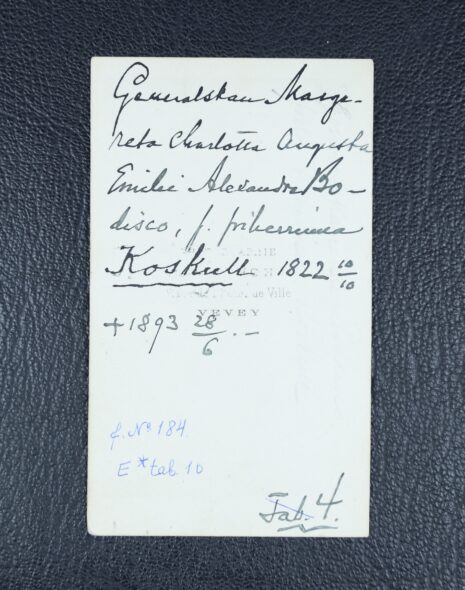 Generalskan Marga-
reta Charlotta Augusta
Emilie Alexandra Bo-
disco, f. friherrinna
Koskull 1822 10/10
de Ville
VEVEY
+ 1893 28/6 . –
f. No 184.
E * tab 10
Tab. 4.